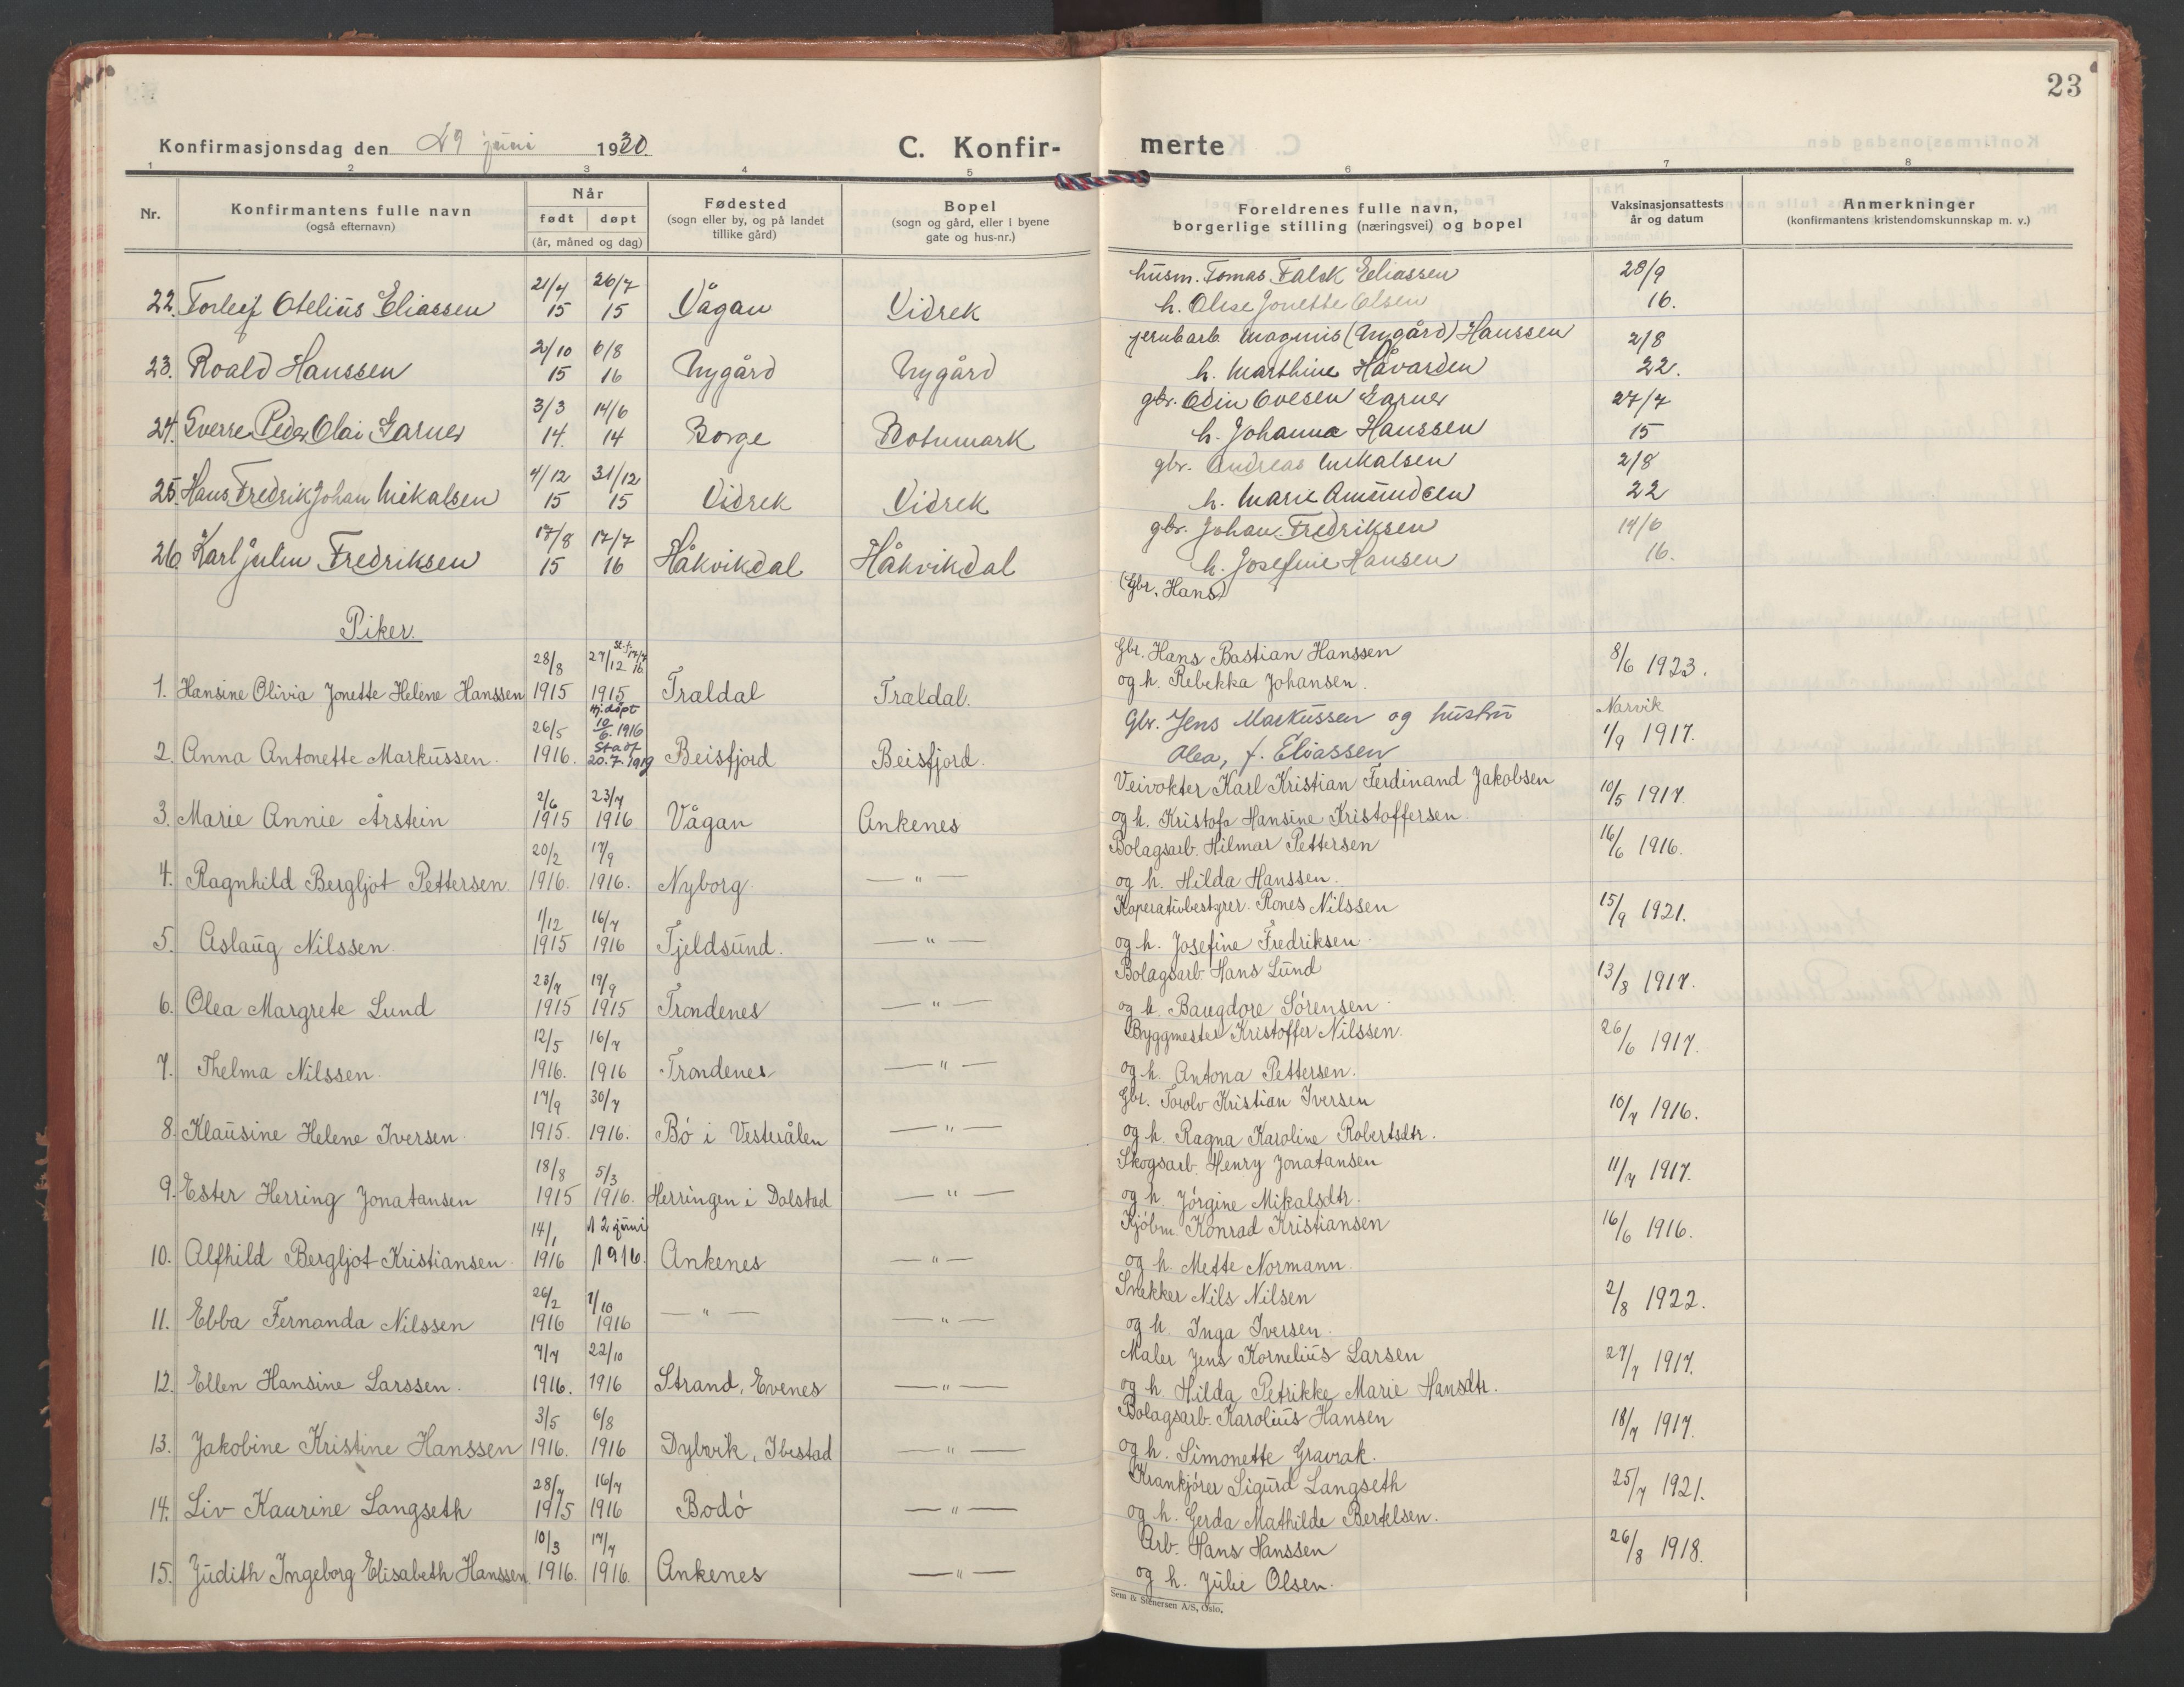 23
Konfirmasjonsdag den 29 juni 1930. C. Konfir- merte
1 2 3 4 5 6 7 8
Nr. Konfirmantens fulle navn (også efternavn) Når født døpt (år, måned og dag) Fødested (sogn eller by, og på landet tillike gård) Bopel (sogn og gård, eller i byene gate og hus-nr.) Foreldrenes fulle navn, borgerlige stilling (næringsvei) og bopel Vaksinasjonsattests år og datum Anmerkninger (konfirmantens kristendomskunnskap m. v.)
21/4 26/7 husm. Tomas Falck Eliassen 28/9
22. Torleif Otelius Eliassen 15 15 Vågan Vidrek h. Olise Jonette Olsen 16.
2/10 6/8 jernbarb. Magnus (Nygård) Hanssen 2/8
23. Roald Hanssen 15 16 Nygård Nygård h. Marthine Håvardsen 22.
3/3 14/6 gbr. Odin Ovesen Garnes 27/7
24. Sverre Peder Olai Garnes 14. 14 Borge Botnmark h. Johanna Hanssen 15
4/12 31/12 gbr. Andreas Mikalsen 2/8
25. Hans Fredrik Johan Mikalsen 15 15 Vidrek Vidrek h. Marie Amundsen 22
17/8 17/7 gbr. Johan Fredriksen 14/6
26. Karl Julin Fredriksen 15 16 Håkvikdal Håkvikdal h. Josefine Hansen 16.
(Gbr. Hans)
Piker.
28/8 27/12 St.f. 17/7 16 Gbr. Hans Bastian Hanssen 8/6 1923.
1. Hansine Olivia Jonette Helene Hanssen 1915 1915 Traldal Traldal. og h. Rebekka Johansen.
26/5 Hj.døpt 10/6. 1916 Gbr. Jens Markussen og hustru Narvik 1/9 1917.
2. Anna Antonette Markussen. 1916. Stadf 20.7.1919 Beisfjord Beisfjord. Olea, f. Eliassen
2/6 23/7 Veivokter Karl Kristian Ferdinand Jakobsen 10/5 1917.
3. Marie Annie Årstein 1915 1916 Vågan Ankenes og h. Kristofa Hansine Kristoffersen.
20/2 17/9 Bolagsarb. Hilmar Pettersen 16/6 1916.
4. Ragnhild Bergljot Pettersen. 1916. 1916. Nyborg. — " — og h. Hilda Hanssen.
1/12 16/7 Koperativbestyrer. Rones Nilssen 15/9 1921.
5. Aslaug Nilssen. 1915 1916 Tjeldsund. — " — og h. Josefine Fredriksen.
23/7 19/9 Bolagsarb. Hans Lund 13/8 1917.
6. Olea Margrete Lund 1915 1915 Trondenes — " — og h. Baugdore Sørensen.
12/5 16/7 Byggmester Kristoffer Nilssen. 26/6 1917.
7. Thelma Nilssen. 1916. 1916 Trondenes — " — og h. Antona Pettersen.
17/9 30/7 Gbr. Torolv Kristian Iversen 10/7 1916.
8. Klausine Helene Iversen. 1915. 1916. Bö i Vesterålen — " — og h. Ragna Karoline Robertsdtr.
18/8 5/3 Skogsarb. Henry Jonatansen 11/7 1917.
9. Ester Herring Jonatansen 1915 1916. Herringen i Dolstad — " — og h. Jörgine Mikalsdtr.
14/1 12 juni Kjöbm. Konrad Kristiansen 16/6 1916.
10. Alfhild Bergljot Kristiansen. 1916 1916. Ankenes — " — og h. Mette Normann.
26/2 1/10 Snekker Nils Nilsen 2/8 1922.
11. Ebba Fernanda Nilssen 1916 1916 — " — — " — og h. Inga Iversen.
7/7 22/10 Maler Jens Kornelius Larsen 27/7 1917.
12. Ellen Hansine Larssen. 1916. 1916 Strand, Evenes — " — og h. Hilda Petrikke Marie Hansdtr.
3/5 6/8 Bolagsarb. Karolius Hansen 18/7 1917.
13. Jakobine Kristine Hanssen 1916. 1916 Dybvik, Ibestad — " — og h. Simonette Gravrak.
28/7 16/7 Krankjörer Sigurd Langseth 25/7 1921.
14. Liv Kaurine Langseth 1915 1916 Bodö — " — og h. Gerda Mathilde Bertelsen.
10/3 17/7 Arb. Hans Hanssen 26/8 1918.
15. Judith Ingeborg Elisabeth Hanssen 1916. 1916. Ankenes — " — og h. Julie Olsen.
Sem & Stenersen A/S, Oslo.